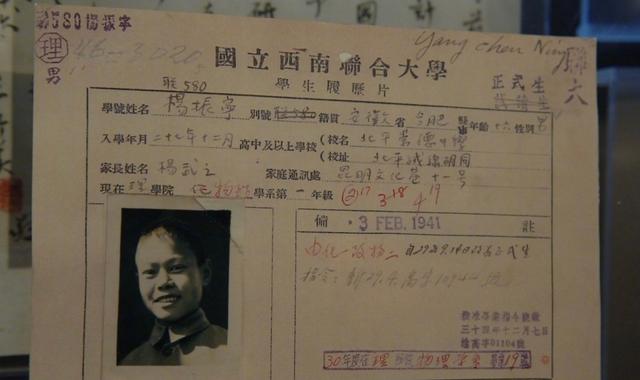 聯580楊振寧
理
男
Yang Chen Ning
聯
六
國立西南聯合大學
學生履歷片
正式生
聯580
學號姓名 楊振寧 別號 籍貫 安徽省合肥縣市 年齡 十六 性別 男
入學年月 二十七年十二月 高中及以上學校 (校名 北平崇德中學
(校址 北平絨線胡同
家長姓名 楊武之 家庭通訊處 昆明文化巷十一號
現在理學院 化物 學系第一年級 2 17 3 18 4 19
備 註
3 FEB. 1941
由化一改物二
指令:
三十四年十二月七日
30年度在理 物理學系 19號